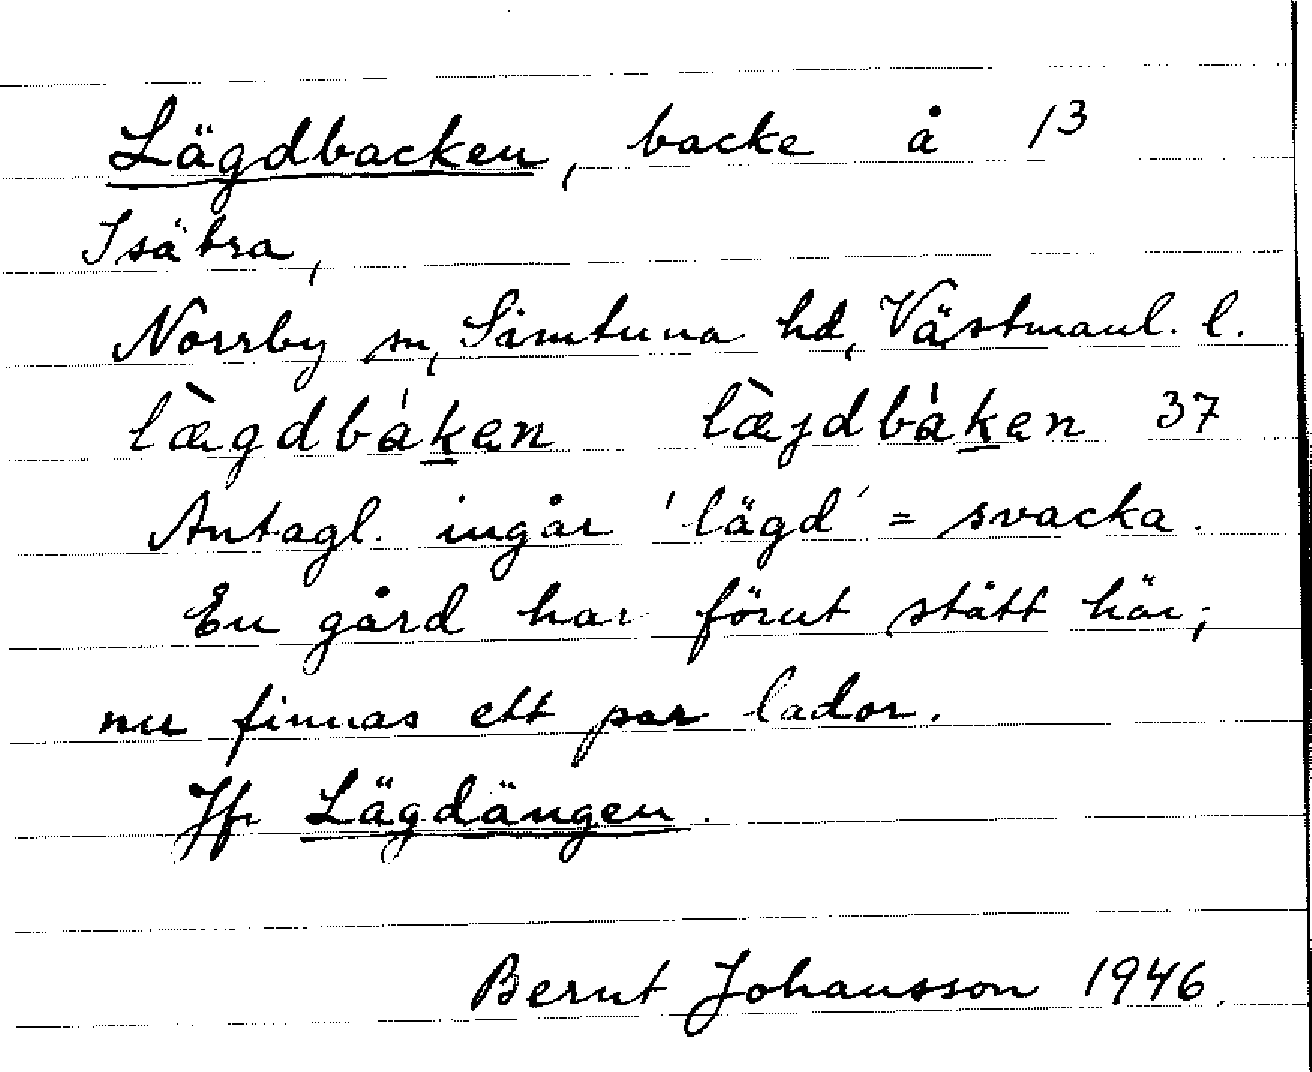 Lägdbacken, backe å 13
Isäbra,
Norrby sn, Simtuna hd, Västmanl. l.
læ̀gdbáken læ̀jdbáken 37
Antagl. ingår 'lägd' = svacka.
En gård har förut stått här;
nu finnas ett par lador.
Jfr Lägdängen.
Bernt Johansson 1946.